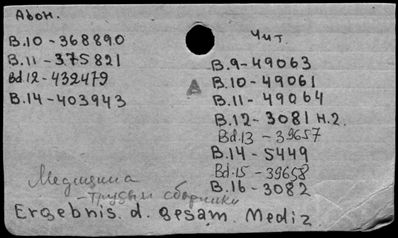 Абон.
В.10-368890
В.11-375821
Bd.12-432479
В.14-403943
Чит.
В.9-49063
В.10-49061
A
В.11-49064
В.12-3081 н.2.
Bd.13-39657
В.14-5449
Bd.15-39658
В.16-3082
Медицина
-труды и сборники
Ergebnis. d. gesam. Mediz.